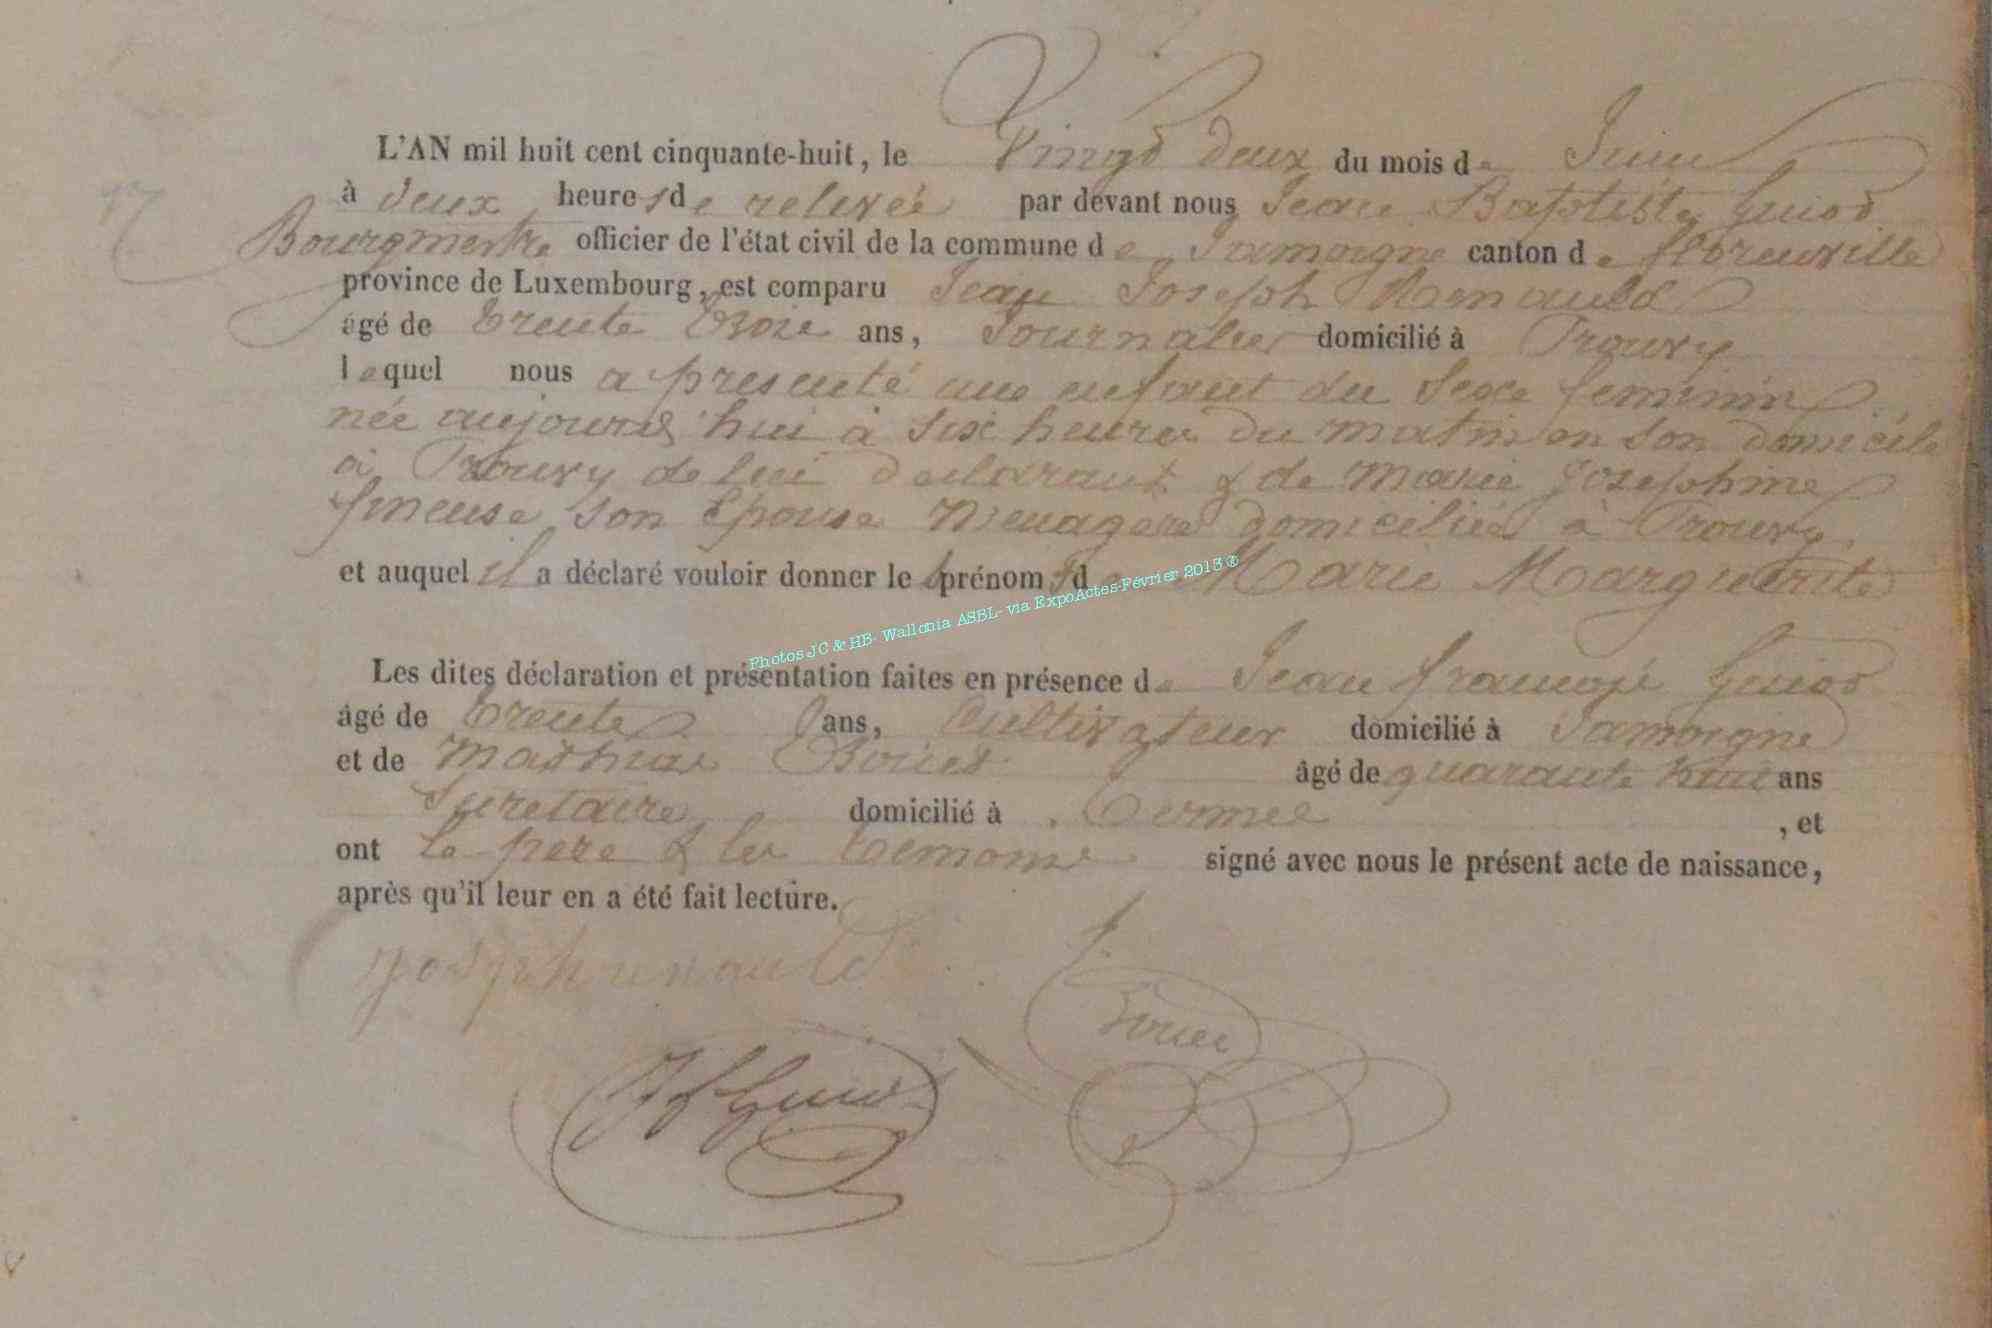 L'AN mil huit cent cinquante-huit, le Vingt deux du mois de Juin
à deux heures de relevée par devant nous Jean Baptiste Guiot
Bourgmestre officier de l'état civil de la commune de Jamoigne canton de florenville
province de Luxembourg, est comparu Jean Joseph Renauld
âgé de trente trois ans, Journalier domicilié à Prouvy
lequel nous a presenté une enfant du sexe feminin
née aujourd'hui à six heures du matin en son domicile
à Prouvy de lui declarant & de Marie Josephine
son Epouse Menagere domiciliés à Prouvy
et auquel il a déclaré vouloir donner les prénoms de Marie Marguerite
Photos JC & HB- Wallonia ASBL- via ExpoActes-Février 2013 ®
Les dites déclaration et présentation faites en présence de Jean françois Guiot
âgé de trente ans, Cultivateur domicilié à Jamoigne
et de Mathias âgé de quarante huit ans
Secretaire domicilié à Termes , et
ont le pere & les temoins signé avec nous le présent acte de naissance,
après qu'il leur en a été fait lecture.
Joseph renauld
JfGuiot